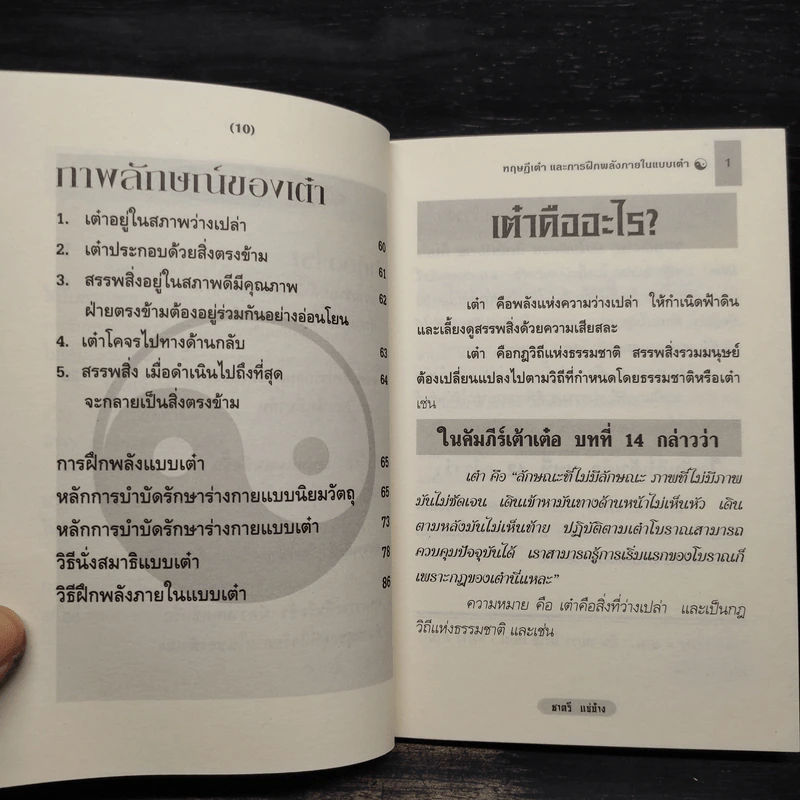 (10)
ภาพลักษณ์ของเต๋า
1. เต๋าอยู่ในสภาพว่างเปล่า 60
2. เต๋าประกอบด้วยสิ่งตรงข้าม 61
3. สรรพสิ่งอยู่ในสภาพดีมีคุณภาพ 62
ฝ่ายตรงข้ามต้องอยู่ร่วมกันอย่างอ่อนโยน
4. เต๋าโคจรไปทางด้านกลับ 63
5. สรรพสิ่ง เมื่อดำเนินไปถึงที่สุด 64
จะกลายเป็นสิ่งตรงข้าม
การฝึกพลังแบบเต๋า 65
หลักการบำบัดรักษาร่างกายแบบนิยมวัตถุ 65
หลักการบำบัดรักษาร่างกายแบบเต๋า 73
วิธีนั่งสมาธิแบบเต๋า 78
วิธีฝึกพลังภายในแบบเต๋า 86
ทฤษฎีเต๋า และการฝึกพลังภายในแบบเต๋า 1
เต๋าคืออะไร?
เต๋า คือพลังแห่งความว่างเปล่า ให้กำเนิดฟ้าดิน
และเลี้ยงดูสรรพสิ่งด้วยความเสียสละ
เต๋า คือกฎวิถีแห่งธรรมชาติ สรรพสิ่งรวมมนุษย์
ต้องเปลี่ยนแปลงไปตามวิถีที่กำหนดโดยธรรมชาติหรือเต๋า
เช่น
ในคัมภีร์เต้าเต๋อ บทที่ 14 กล่าวว่า
เต๋า คือ “ลักษณะที่ไม่มีลักษณะ ภาพที่ไม่มีภาพ
มันไม่ชัดเจน เดินเข้าหามันทางด้านหน้าไม่เห็นหัว เดิน
ตามหลังมันไม่เห็นท้าย ปฏิบัติตามเต๋าโบราณสามารถ
ควบคุมปัจจุบันได้ เราสามารถรู้การเริ่มแรกของโบราณก็
เพราะกฎของเต๋านี่แหละ”
ความหมาย คือ เต๋าคือสิ่งที่ว่างเปล่า และเป็นกฎ
วิถีแห่งธรรมชาติ และเช่น
ชาตรี แซ่บ้าง